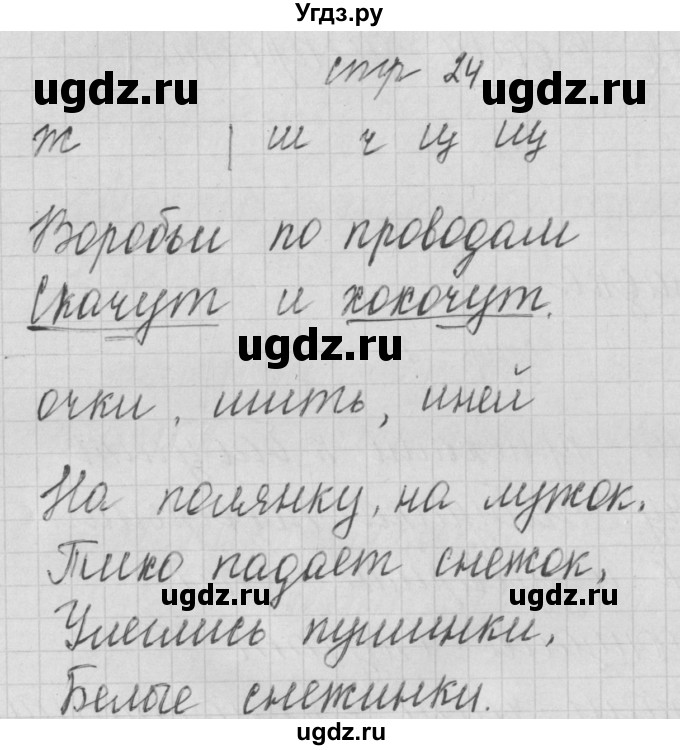 Угдз.ру
стр 24
ugdz.ru ugdz.ru
ж | ш ч щ щ
Воробьи по проводам
Скачут и хохочут.
ugdz.ru
очки, шить, иней
На полянку, на лужок.
Тихо падает снежок,
ugdz.ru ugdz.ru
Улеглись пушинки,
Белые снежинки.
ugdz.ru